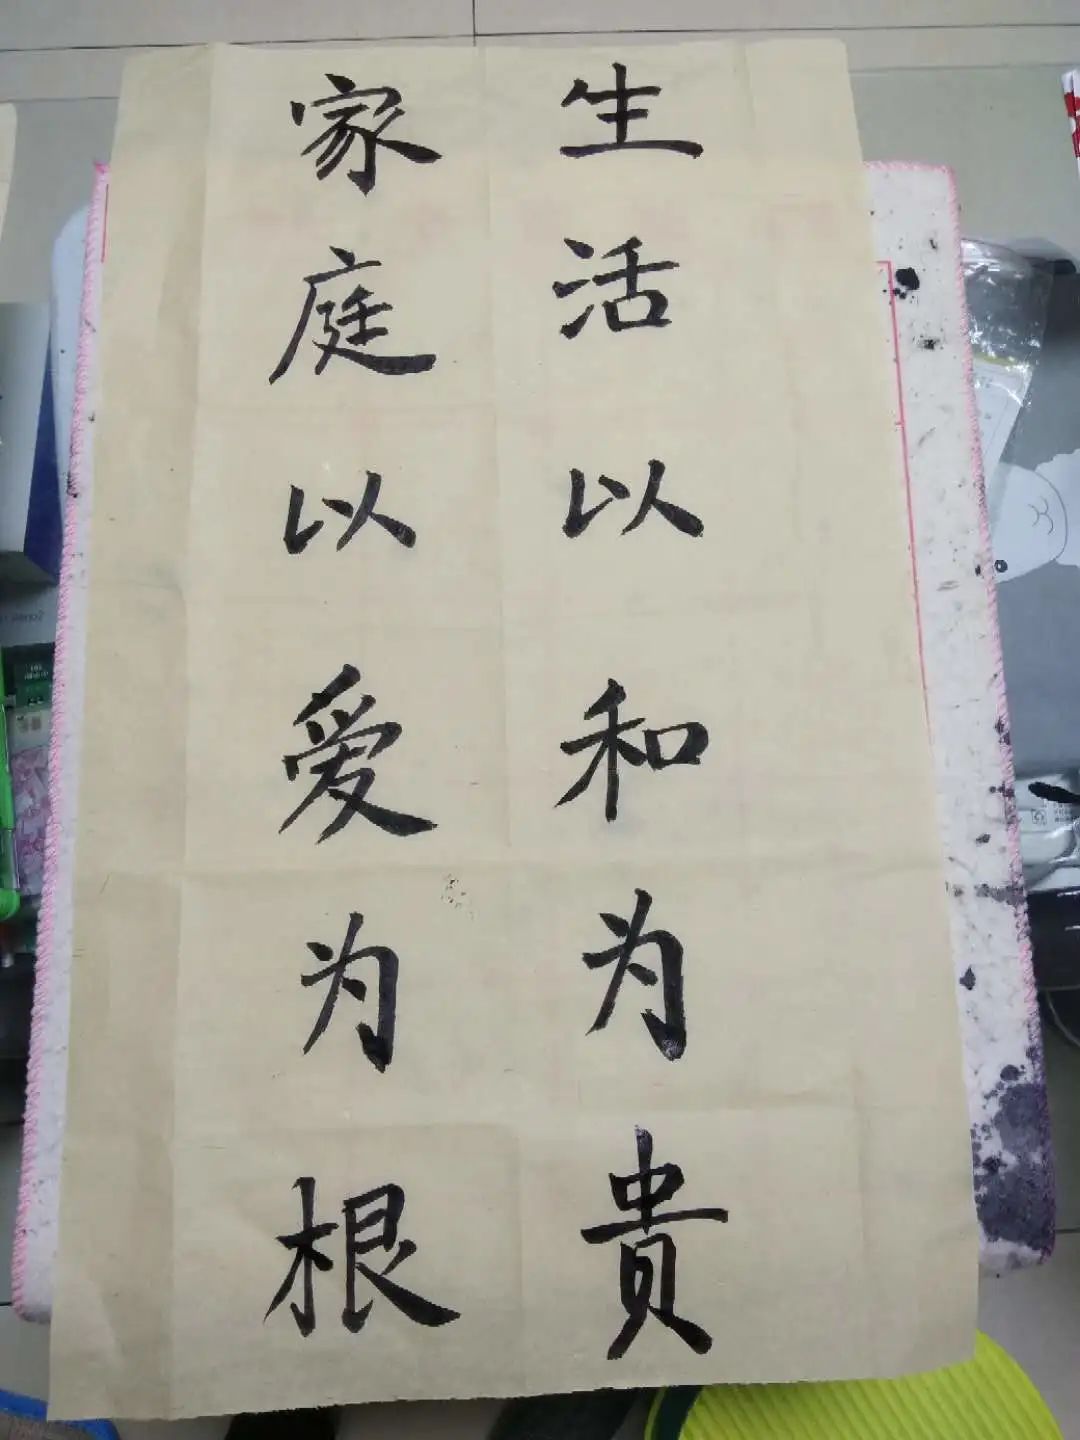 生活以和为贵
家庭以爱为根